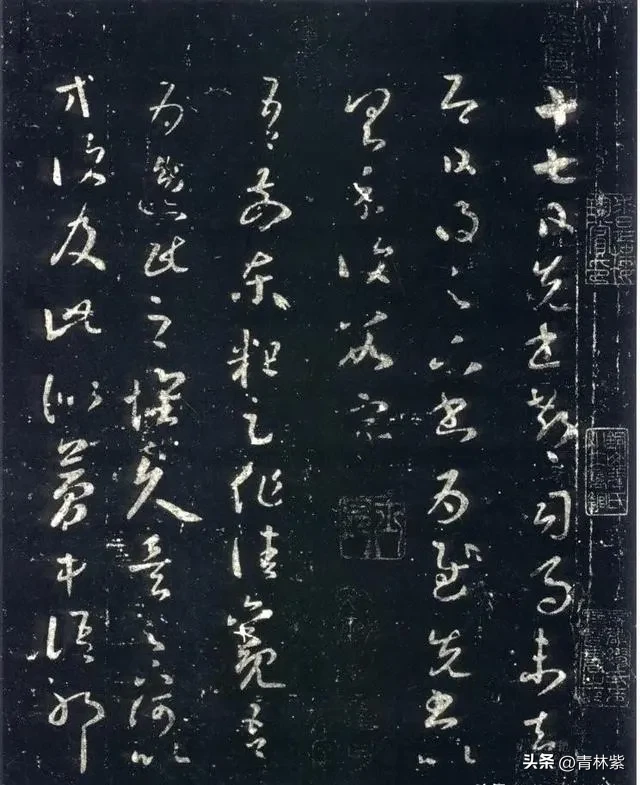 十七日先書郗司馬未去
即日得足下書為慰先書以
具示復數字
吾前東粗足作佳觀吾
為逸民之懷久矣足下何以
方復及此似夢中語耶
头条 @青林紫